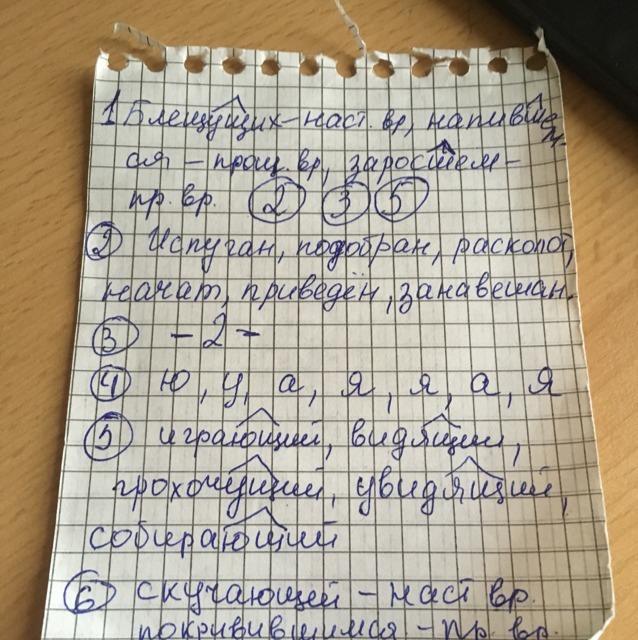 1 Блещущих - наст. вр, напившем
ся - прош. вр, заросшем -
пр. вр. 2 3 5
2 Испуган, подобран, расколот,
начат, приведён, занавешан.
3 - 2 -
4 ю, у, а, я, я, а, я
5 играющий, видящий,
грохочущий, увидящий,
собирающий
6 скучающей - наст вр.
покривившимся - пр. вр.